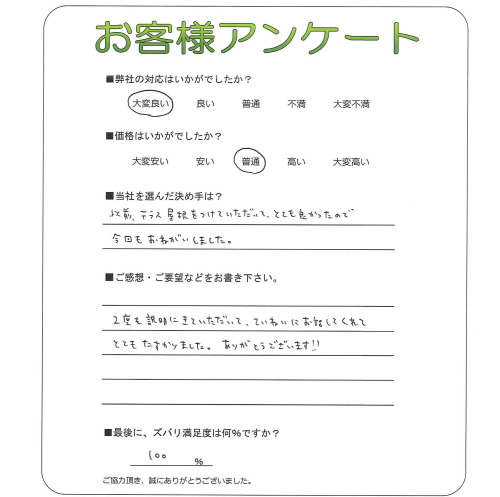 お客様アンケート
■弊社の対応はいかがでしたか？
大変良い 良い 普通 不満 大変不満
■価格はいかがでしたか？
大変安い 安い 普通 高い 大変高い
■当社を選んだ決め手は？
以前、テラス屋根をつけていただいて、とても良かったので
今回もおねがいしました。
■ご感想・ご要望などをお書き下さい。
2度も説明にきていただいて、ていねいにお話してくれて
とてもたすかりました。ありがとうございます!!
■最後に、ズバリ満足度は何%ですか？
100 %
ご協力頂き、誠にありがとうございました。